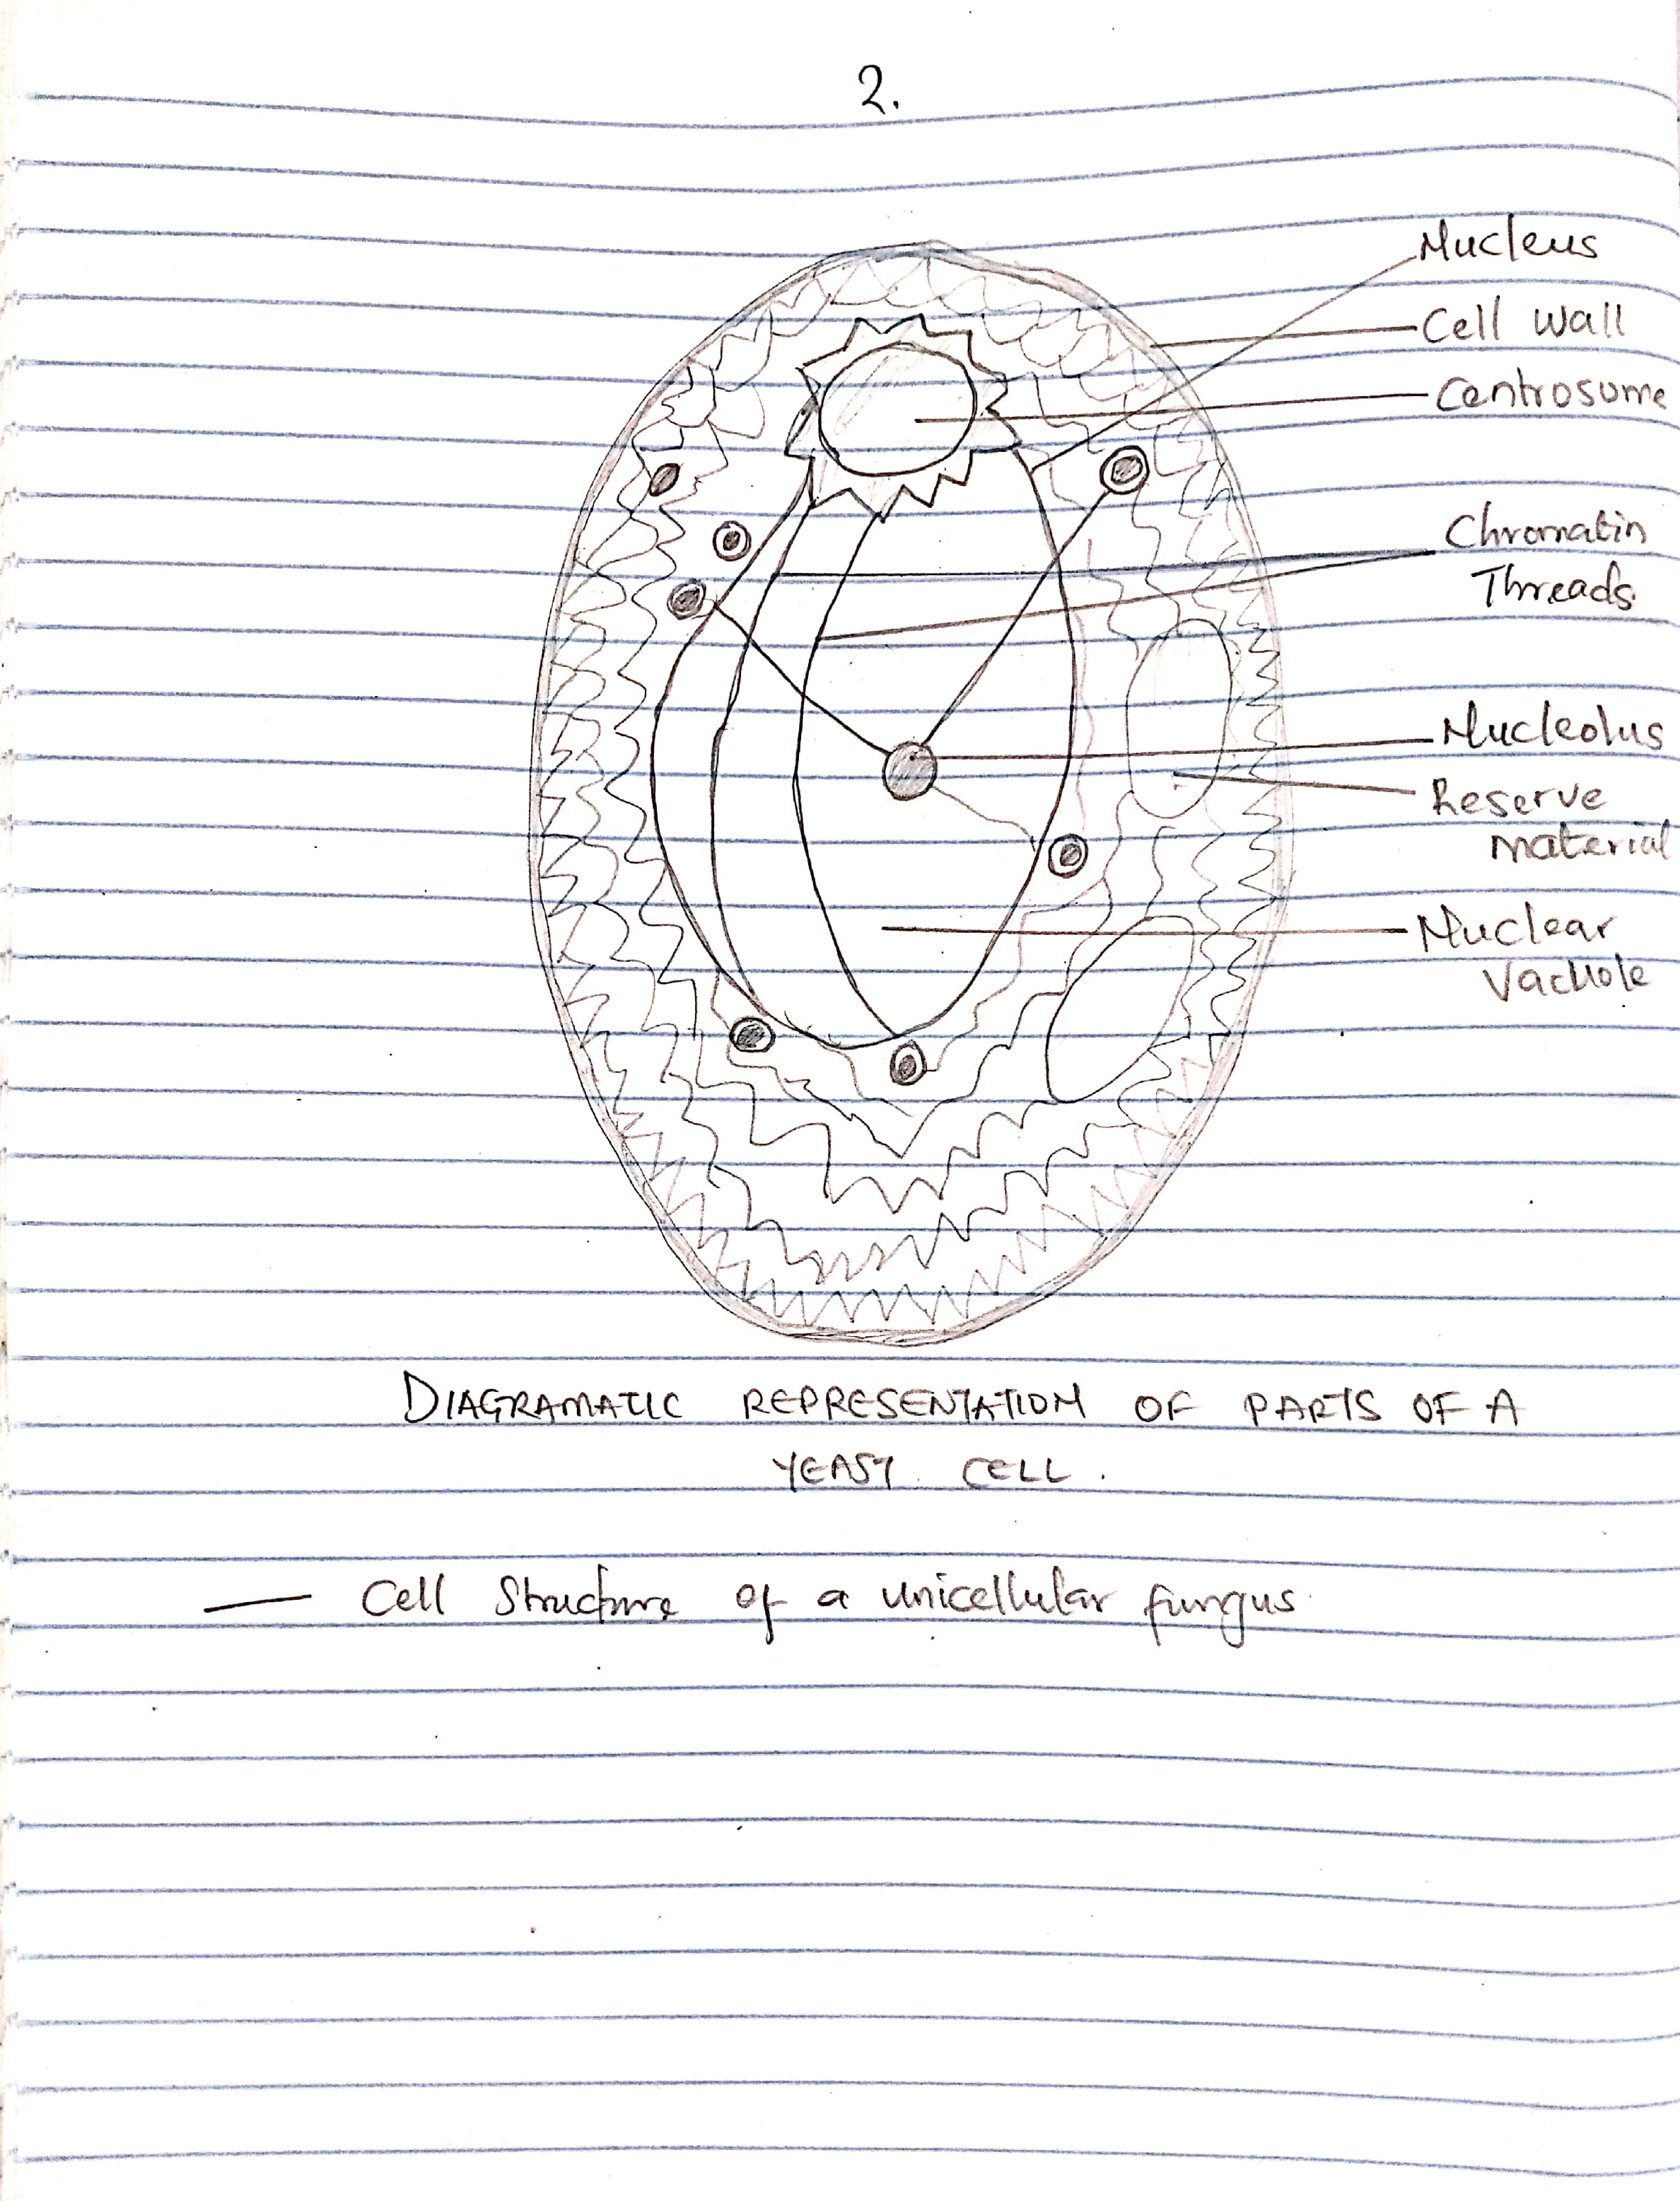 2.
Nucleus
Cell wall
Centrosome
Chromatin
Threads.
Nucleolus
Reserve
material
Nuclear
Vacuole
DIAGRAMATIC REPRESENTATION OF PARTS OF A
YEAST CELL.
— Cell Structure of a unicellular fungus.